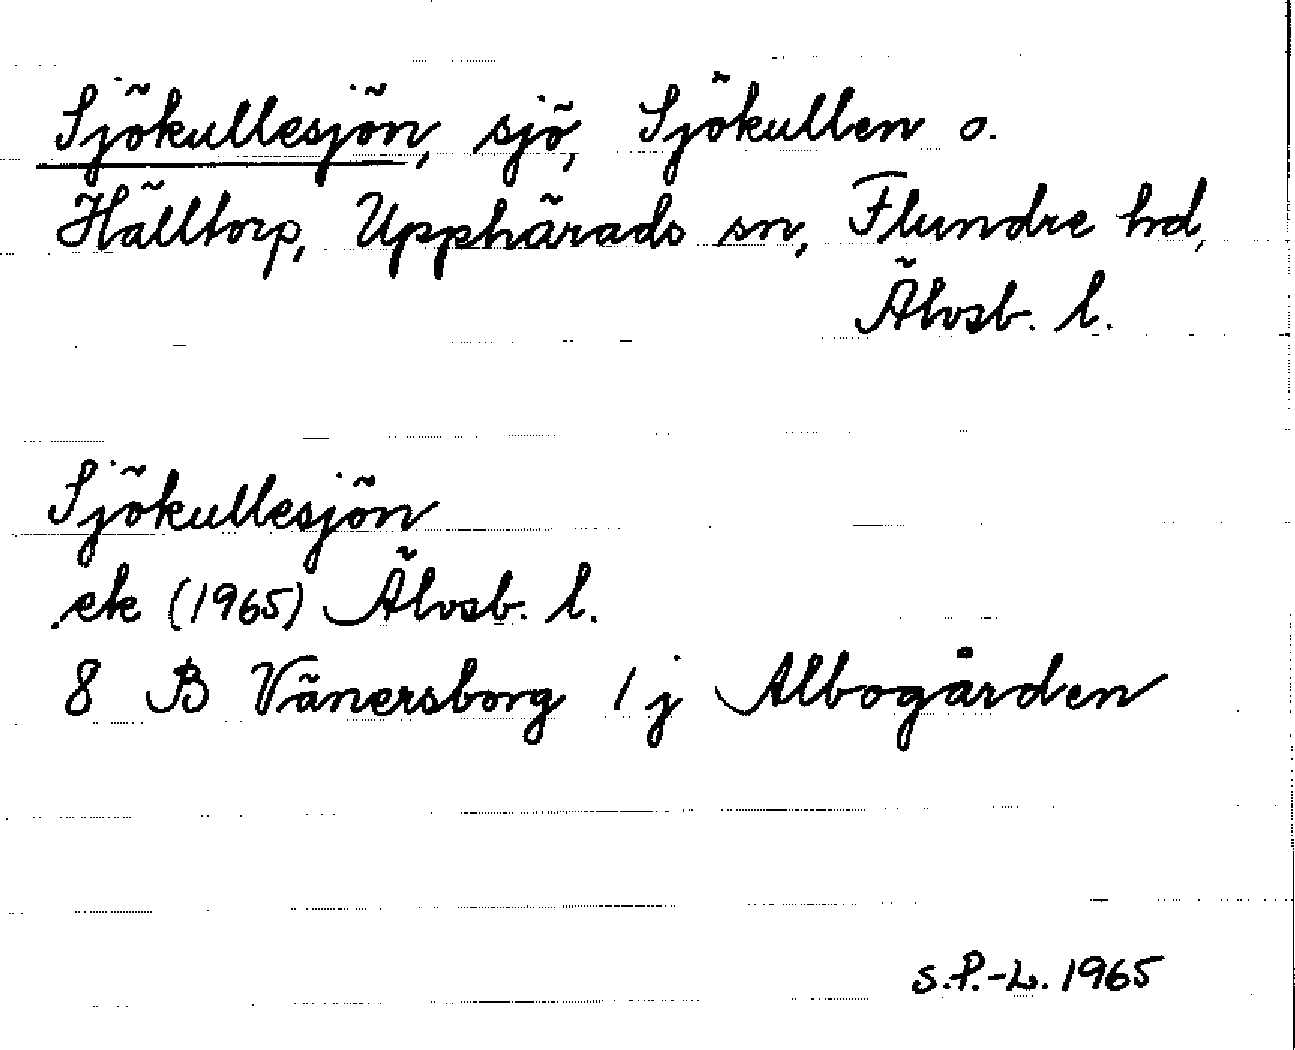 Sjökullesjön, sjö, Sjökullen o.
Hälltorp, Upphärads sn, Flundre hd,
Älvsb. l.
Sjökullesjön
ek (1965) Älvsb. l.
8 B Vänersborg 1 j Albogården
S.P.-L. 1965